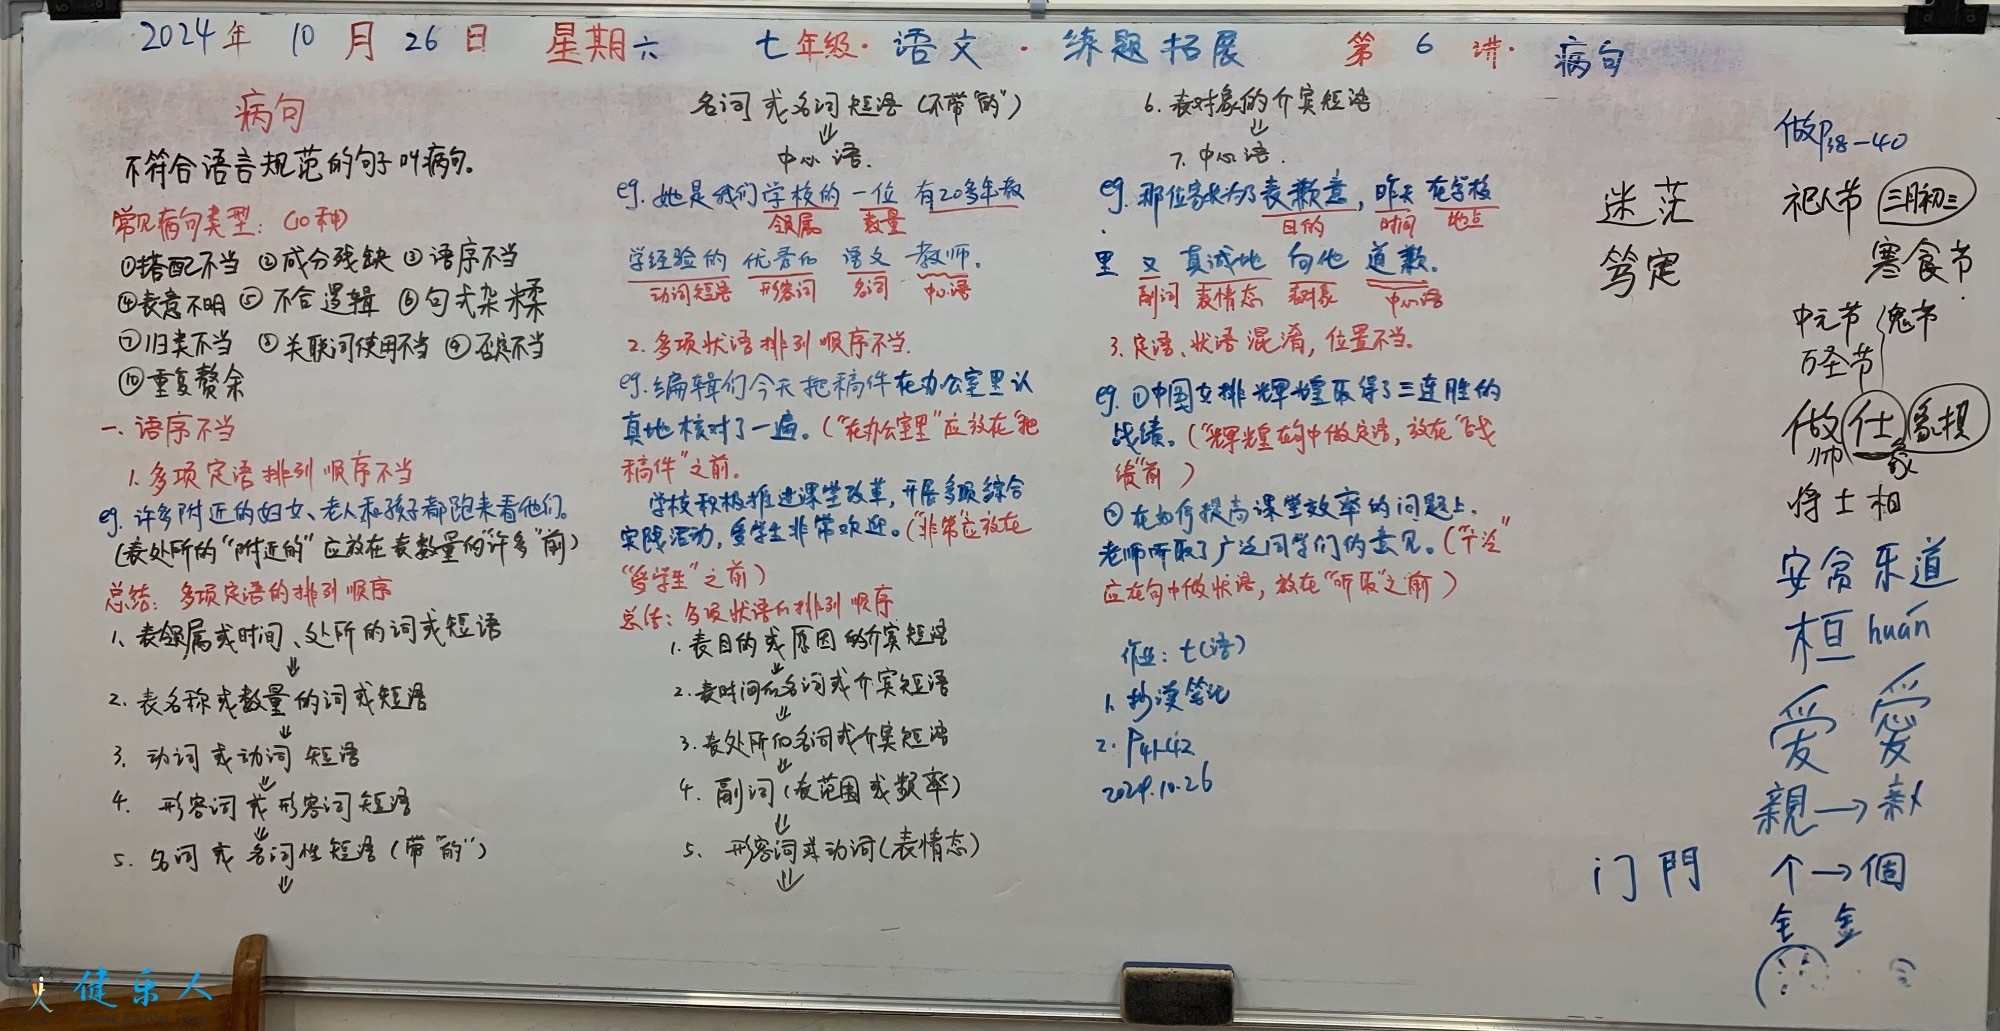 2024年 10月 26日 星期六 七年级·语文·练题拓展 第6讲·病句
病句
不符合语言规范的句子叫病句。
常见病句类型：(10种)
①搭配不当 ②成分残缺 ③语序不当
④表意不明 ⑤不合逻辑 ⑥句式杂糅
⑦归类不当 ⑧关联词使用不当 ⑨否定不当
⑩重复赘余
一、语序不当
1.多项定语排列顺序不当
eg.许多附近的妇女、老人和孩子都跑来看他们。
(表处所的"附近的"应放在表数量的"许多"前)
总结：多项定语的排列顺序
1、表领属或时间、处所的词或短语
⇓
2.表名称或数量的词或短语
⇓
3.动词或动词短语
⇓
4.形容词或形容词短语
⇓
5.名词或名词性短语(带"的")
⇓
名词或名词短语(不带"的")
⇓
中心语.
eg.她是我们学校的一位有20多年教
领属 数量
学经验的优秀的语文教师。
动词短语 形容词 名词 中心语
2.多项状语排列顺序不当.
eg.编辑们今天把稿件在办公室里认
真地核对了一遍。("在办公室里"应放在"把
稿件"之前。
学校积极推进课堂改革,开展多项综合
实践活动,受学生非常欢迎。("非常"应放在
"受学生"之前)
总结：多项状语的排列顺序
1.表目的或原因的介宾短语
⇓
2.表时间的名词或介宾短语
⇓
3.表处所的名词或介宾短语
⇓
4.副词(表范围或频率)
⇓
5.形容词或动词(表情态)
⇓
6.表对象的介宾短语
⇓
7.中心语.
eg.那位家长为了表歉意,昨天在学校
目的 时间 地点
里又真诚地向他道歉。
副词 表情态 表对象 中心语
3.定语、状语混淆,位置不当。
eg.①中国女排辉煌取得了三连胜的
战绩。("辉煌"在句中做定语,放在"战
绩"前)
②在如何提高课堂效率的问题上.
老师听取了广泛同学们的意见。("广泛"
应在句中做状语,放在"听取"之前)
作业：七(语)
1.抄、读笔记
2.P41-42
2024.10.26
迷茫
笃定
门 門
做P38-40
祀人节 三月初三
寒食节
中元节 鬼节
万圣节
做 仕 象棋
帅 象
将士相
安贫乐道
桓 huán
爱 愛
親→亲
个→個